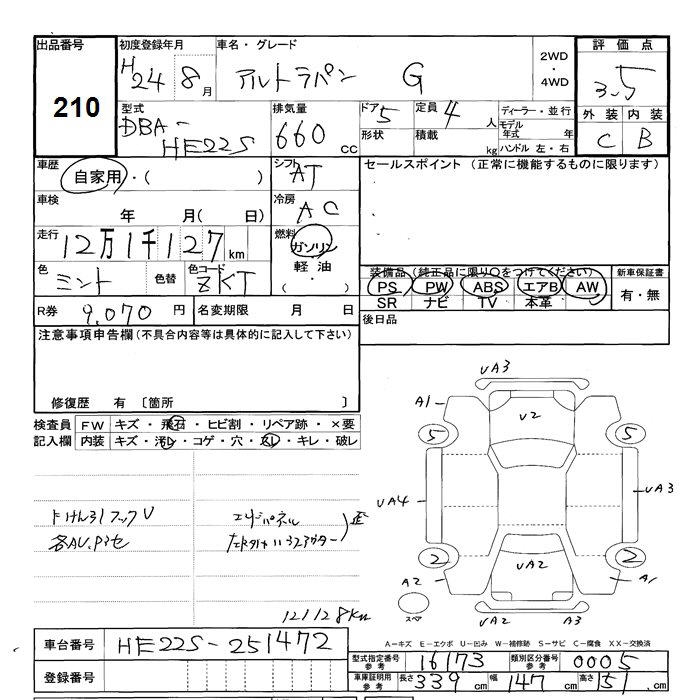 出品番号 初度登録年月 車名・グレード 2WD・4WD 評価点
210 H24 8月 アルトラパン G 3.5
型式 排気量 ドア 定員 ディーラー・並行 外装 内装
DBA-HE22S 660cc 5 4人 モデル年式 年 C B
形状 積載 kg ハンドル 左・右
車歴 シフト セールスポイント (正常に機能するものに限ります)
自家用・( ) AT
車検 冷房
年 月(日) AC
走行 燃料
12万1千127km ガソリン
色 色替 色コード 軽油 装備品(純正品に限り○をつけてください) 新車保証書
ミント ZKT (・) PS PW ABS エアB AW 有・無
SR ナビ TV 本革
R券 9,070円 名変期限 月 日 後日品
注意事項申告欄(不具合内容等は具体的に記入して下さい)
修復歴 有 〔箇所 〕
検査員 FW キズ・飛石・ヒビ割・リペア跡・×要
記入欄 内装 キズ・汚レ・コゲ・穴・スレ・キレ・破レ
下けん引フックV
各AU.Pモセ
121128km
UA3
A1 V2
5 5
UA4 UA3
2 2
A2 UA2 A1
スペア UA2 A3
A-キズ E-エクボ U-凹み W-補修跡 S-サビ C-腐食 XX-交換済
車台番号 HE22S-251472
型式指定番号参考 16173 類別区分番号参考 0005
登録番号
車庫証明用参考 長さ 339cm 幅 147cm 高さ 151cm